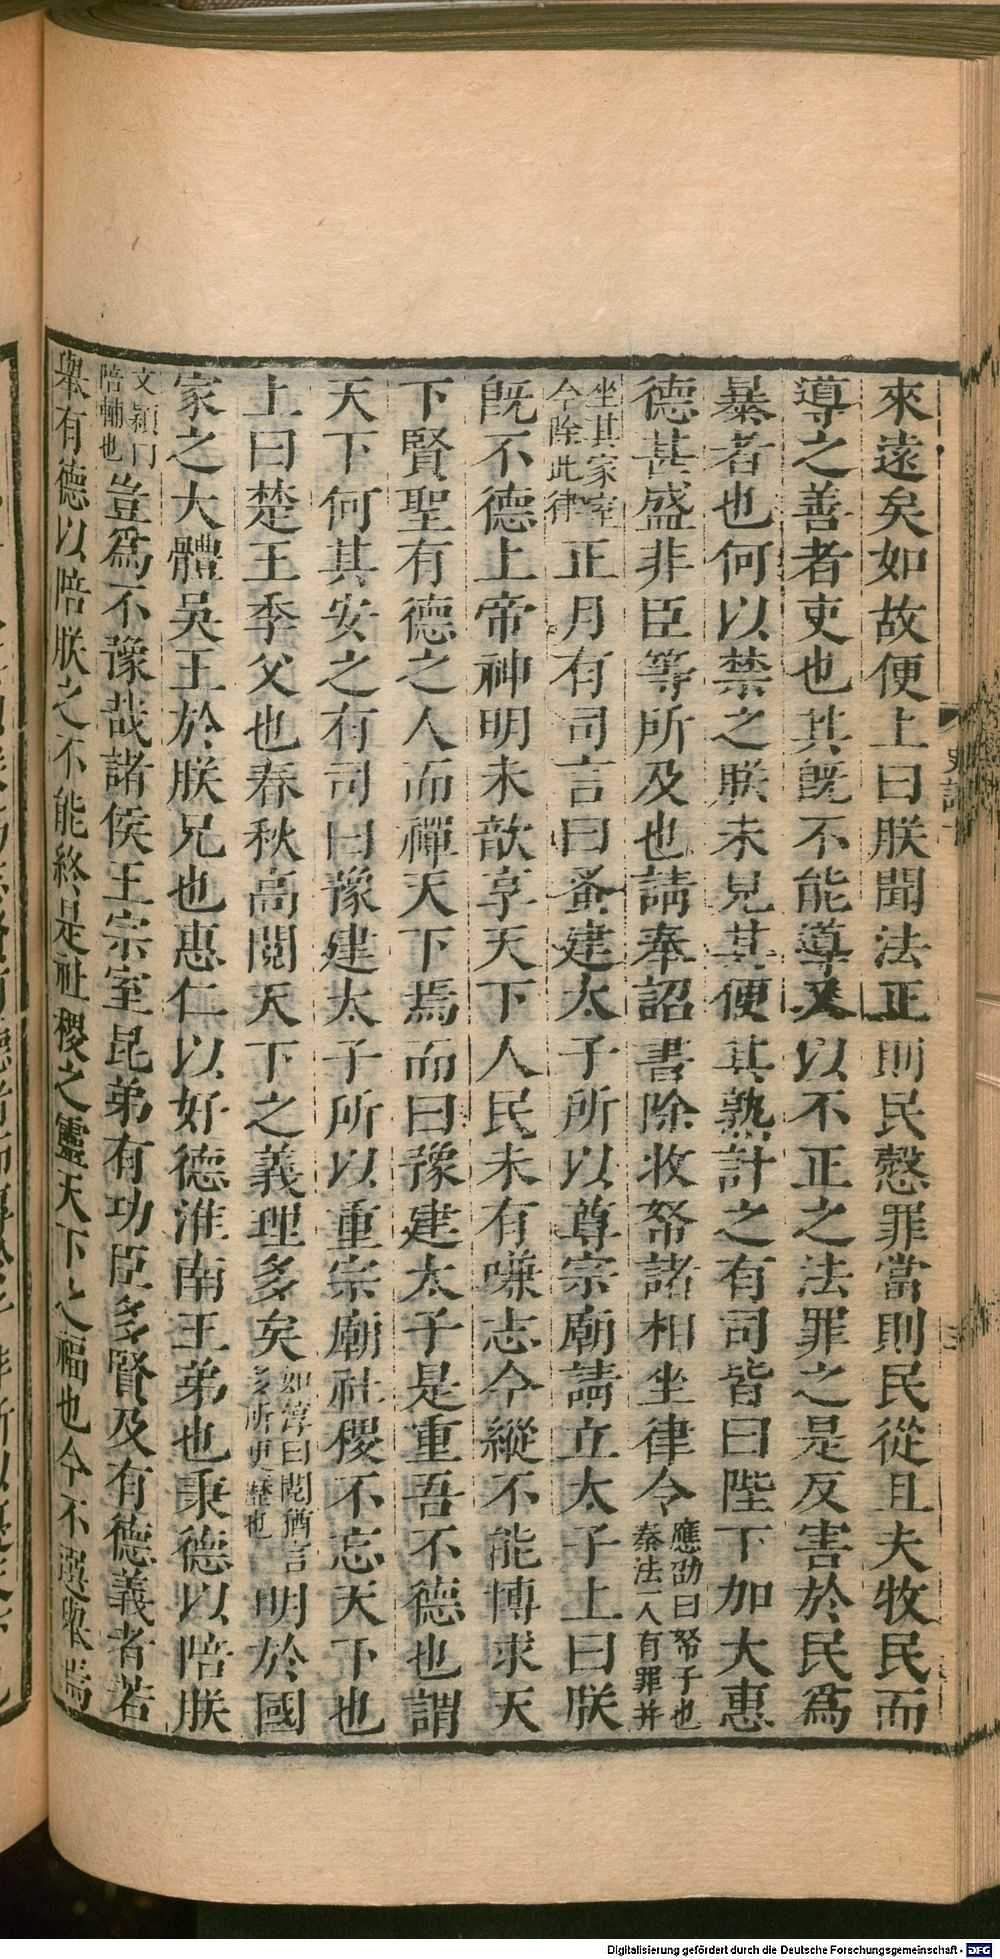 來遠矣如故便上曰朕聞法正則民慤罪當則民從且夫牧民而
導之善者吏也其旣不能導又以不正之法罪之是反害於民爲
暴者也何以禁之朕未見其便其熟計之有司皆曰陛下加大惠
德甚盛非臣等所及也請奉詔書除收帑諸相坐律令應劭曰帑子也秦法一人有罪并
坐其家室今除此律正月有司言曰蚤建太子所以尊宗廟請立太子上曰朕
旣不德上帝神明未歆享天下人民未有嗛志今縱不能博求天
下賢聖有德之人而禪天下焉而曰豫建太子是重吾不德也謂
天下何其安之有司曰豫建太子所以重宗廟社稷不忘天下也
上曰楚王季父也春秋高閱天下之義理多矣如淳曰閱猶言多所更歷也明於國
家之大體吳王於朕兄也惠仁以好德淮南王弟也秉德以陪朕
文穎曰陪輔也豈爲不豫哉諸侯王宗室昆弟有功臣多賢及有德義者若
舉有德以陪朕之不能終是社稷之靈天下之福也今不選舉焉
史記十
Digitalisierung gefördert durch die Deutsche Forschungsgemeinschaft - DFG